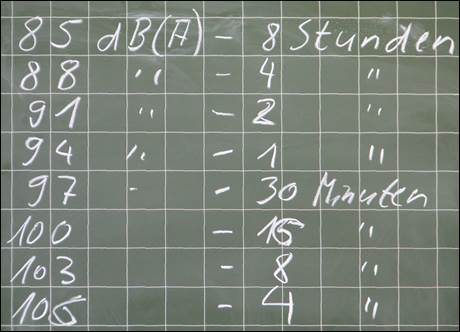 85 dB(A) - 8 Stunden
88 " - 4 "
91 " - 2 "
94 " - 1 "
97 - - 30 Minuten
100 - 15 "
103 - 8 "
106 - 4 "